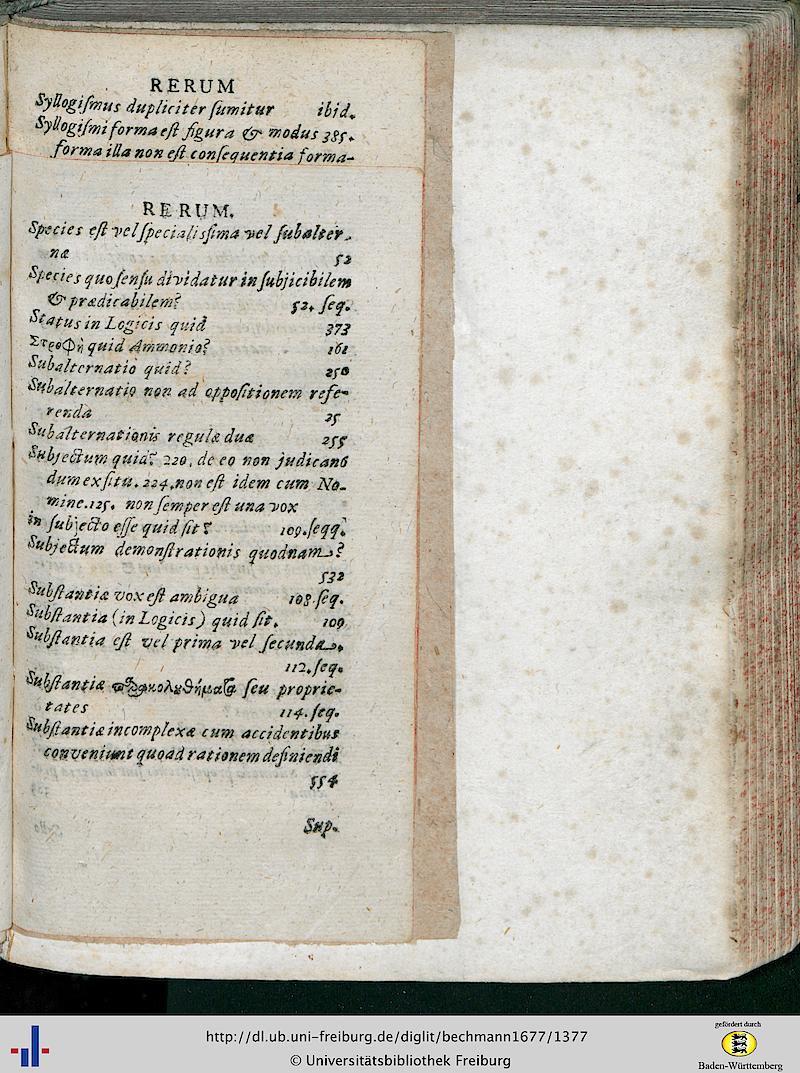 RERUM
Syllogiſmus dupliciter ſumitur ibid.
Syllogiſmi forma eſt figura & modus 385.
forma illa non eſt conſequentia forma-
RERUM.
Species eſt vel ſpecialiſſima vel ſubalter-
næ 52
Species quo ſenſu dividatur in ſubjicibilem
& prædicabilem? 52. ſeq.
Status in Logicis quid 373
Στροφὴ quid Ammonio? 161
Subalternatio quid? 250
Subalternatio non ad oppoſitionem refe-
renda 25
Subalternationis regulæ duæ 255
Subjectum quid? 220. de eo non judican
dum ex ſitu. 224. non eſt idem cum No-
mine. 125. non ſemper eſt una vox
in ſubjecto eſſe quid ſit? 109. ſeqq.
Subjectum demonſtrationis quodnam?
532
Subſtantiæ vox eſt ambigua 108 ſeq.
Subſtantia (in Logicis) quid ſit. 109
Subſtantia eſt vel prima vel ſecunda.
112. ſeq.
Subſtantiæ παρακολουθήματα ſeu proprie-
tates 114. ſeq.
Subſtantiæ incomplexæ cum accidentibus
conveniunt quoad rationem definiendi
554
Sup.
http://dl.ub.uni-freiburg.de/diglit/bechmann1677/1377
© Universitätsbibliothek Freiburg
gefördert durch
Baden-Württemberg